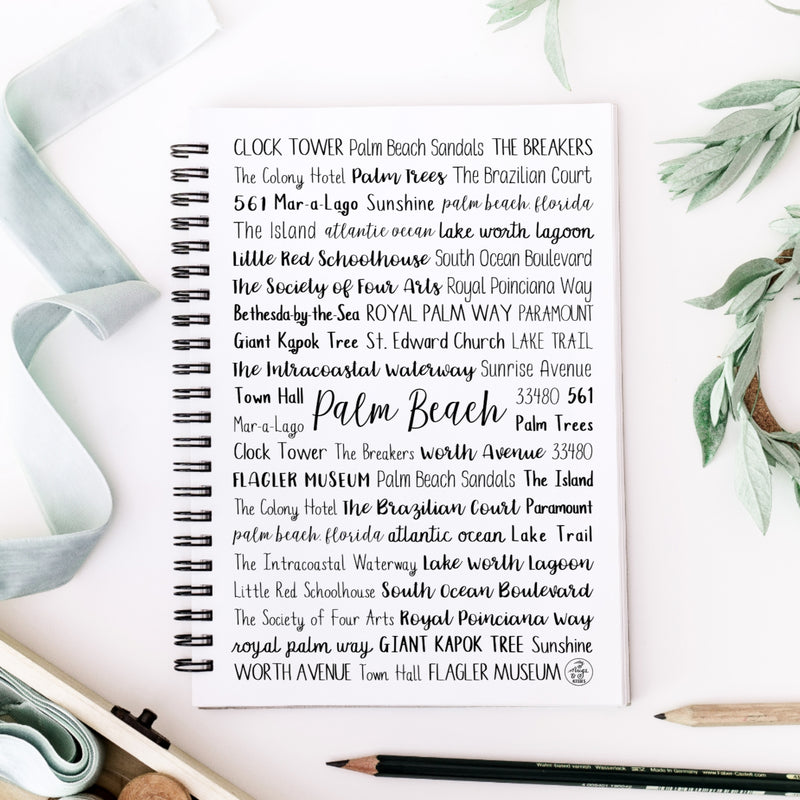 CLOCK TOWER Palm Beach Sandals THE BREAKERS
The Colony Hotel Palm Trees The Brazilian Court
561 Mar-a-Lago Sunshine palm beach, florida
The Island atlantic ocean lake worth lagoon
Little Red Schoolhouse South Ocean Boulevard
The Society of Four Arts Royal Poinciana Way
Bethesda-by-the-Sea ROYAL PALM WAY PARAMOUNT
Giant Kapok Tree St. Edward Church LAKE TRAIL
The Intracoastal Waterway Sunrise Avenue
Town Hall Palm Beach 33480 561
Mar-a-Lago Palm Trees
Clock Tower The Breakers Worth Avenue 33480
FLAGLER MUSEUM Palm Beach Sandals The Island
The Colony Hotel The Brazilian Court Paramount
palm beach, florida atlantic ocean Lake Trail
The Intracoastal Waterway Lake Worth Lagoon
Little Red Schoolhouse South Ocean Boulevard
The Society of Four Arts Royal Poinciana Way
royal palm way GIANT KAPOK TREE Sunshine
WORTH AVENUE Town Hall FLAGLER MUSEUM
Made in Germany www.Faber-Castell.com